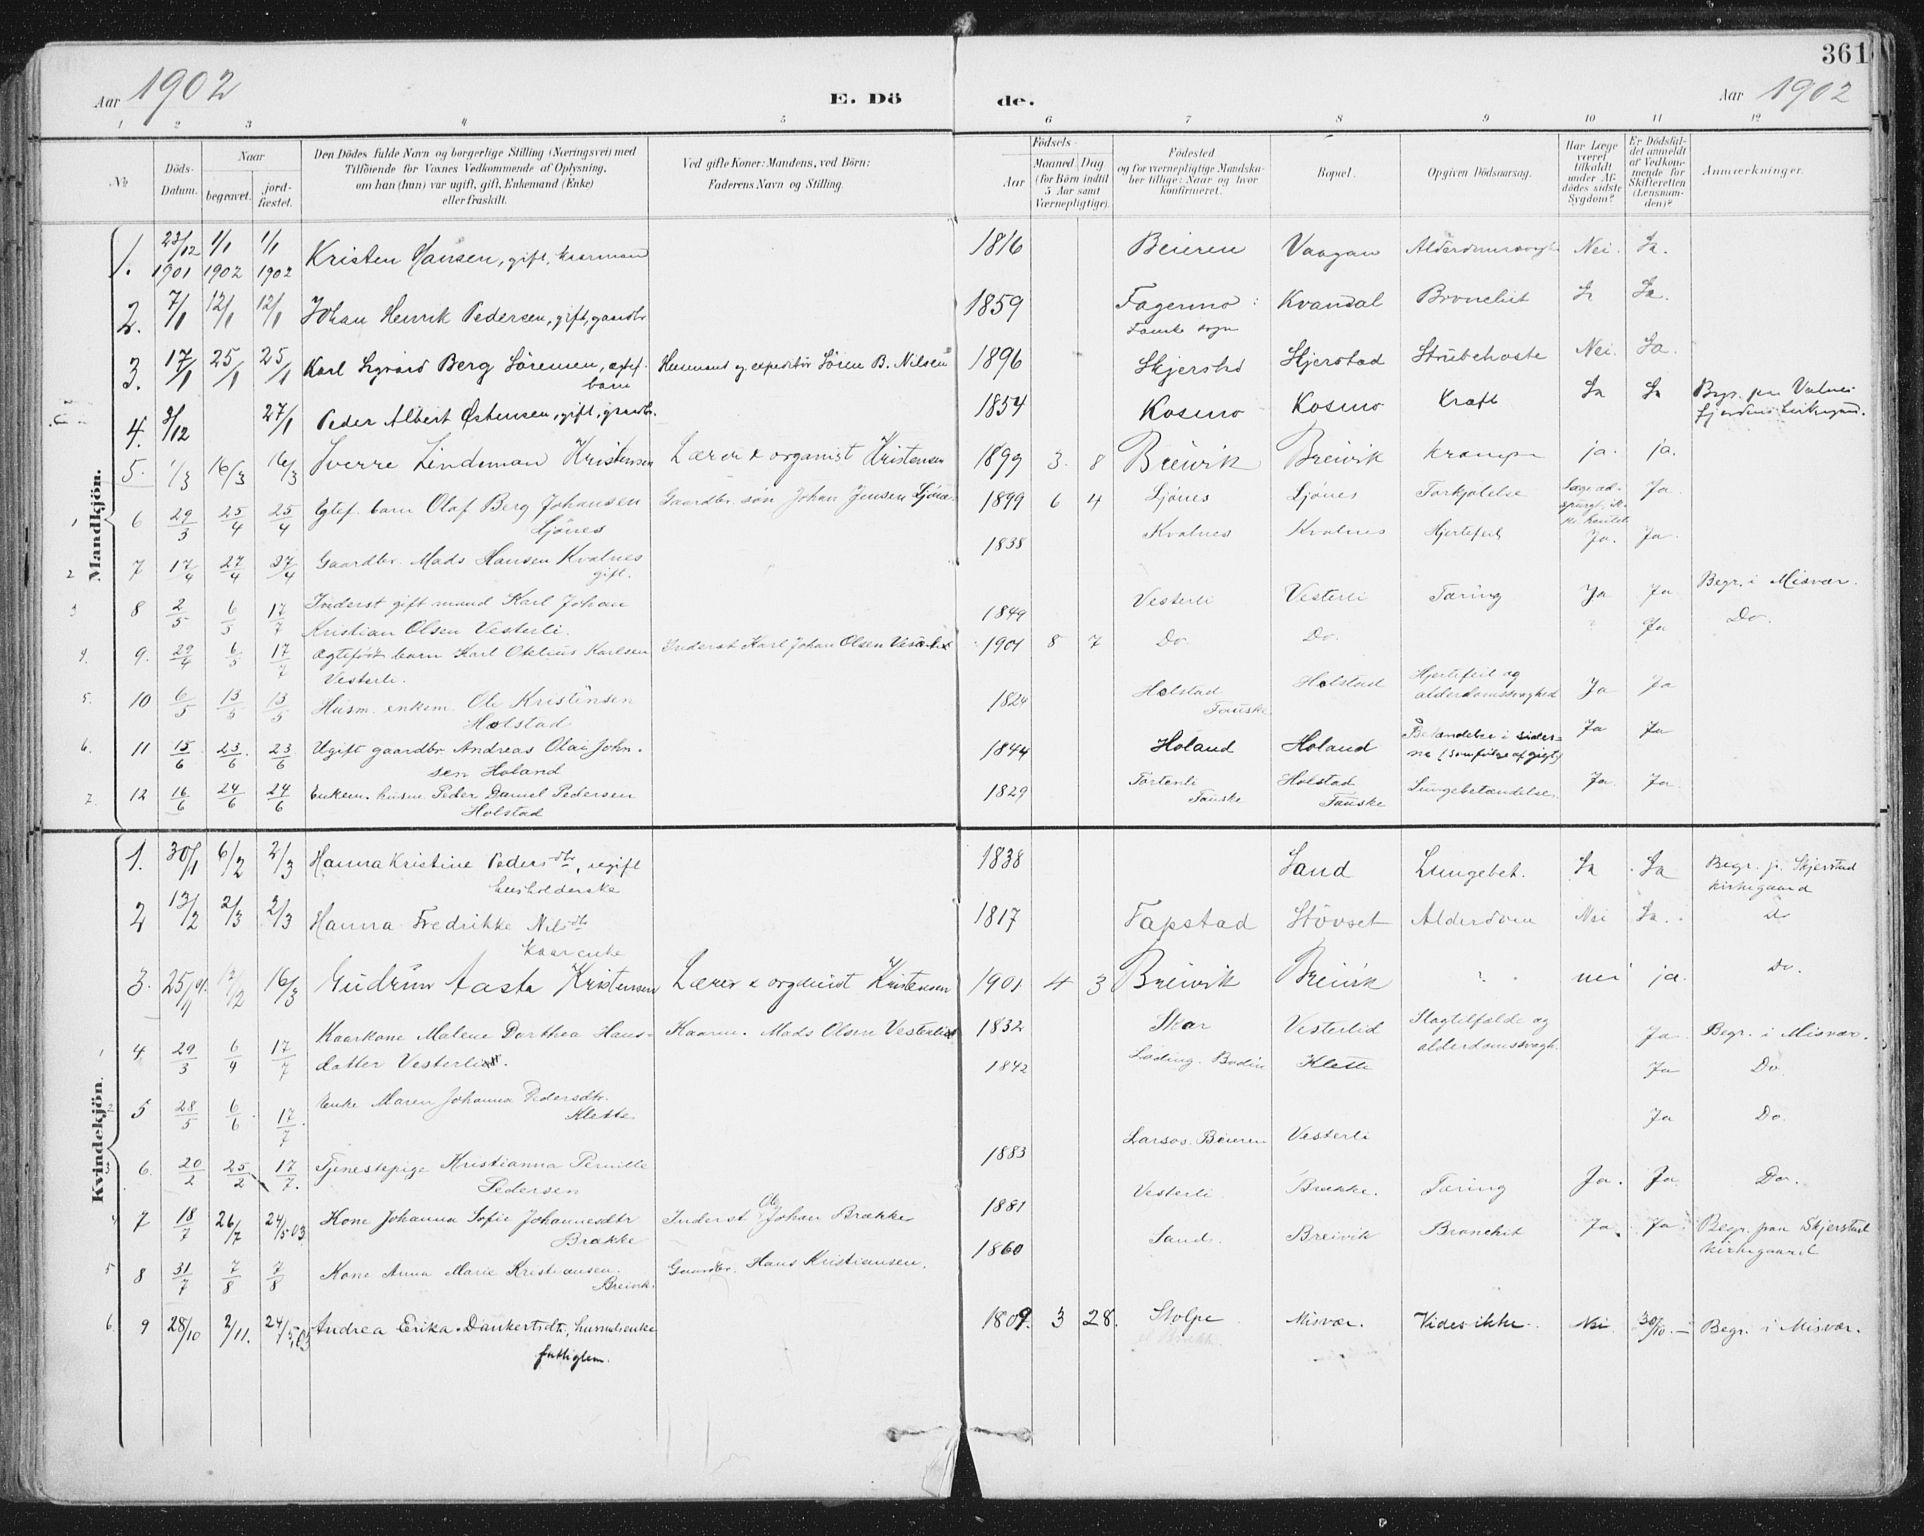 361
Aar 1902
E. Dö de.
Aar 1902
1 2 3 4 5 6 7 8 9 10 11 12
No
Döds-Datum.
Naar
begravet.
jord-fæstet.
Den Dödes fulde Navn og borgerlige Stilling (Næringsvei) med
Tilföiende for Voxnes Vedkommende af Oplysning,
om han (hun) var ugift, gift, Enkemand (Enke)
eller fraskilt.
Ved gifte Koner: Mandens, ved Börn:
Faderens Navn og Stilling.
Födsels-
Aar
Maaned Dag
(for Börn indtil
5 Aar samt
Værnepligtige).
Födested
og for værnepligtige Mandska-
ber tillige: Naar og hvor
konfirmeret.
Bopæl.
Opgiven Dödsaarsag.
Har Læge
været
tilkaldt
under Af-
dödes sidste
Sygdom?
Er Dödsfal-
det anmeldt
af Vedkom-
mende for
Skifteretten
(Lensman-
den)?
Anmærkninger.
Mandkjön.
1. 23/12 1901 1/1 1902 1/1 1902 Kristen Hansen, gift, kaarmand 1816 Beieren Vaagan Alderdomssvagh Nei. Ja.
2. 7/1 12/1 12/1 Johan Henrik Pedersen, gift, gaardbr 1859 Fagermo Kvandal Bronchit Ja Ja.
Fauske sogn
3. 17/1 25/1 25/1 Karl Sigvard Berg Sörensen, egtef. Husmand og expeditör Sören B. Nilsen 1896 Skjerstad Skjerstad Strubehoste Nei. Ja.
barn
4. 3/12 27/1 Peder Albert Östensen, gift, gaardbr. 1854 Kosmo Kosmo Kræft Ja Ja Begr. paa Valnes-
fjordens kirkegaard.
5. 1/3 16/3 16/3 Sverre Lindeman Kristensen Lærer & organist Kristensen 1899 3. 8 Breivik Breivik Krampe ja. ja.
6 29/3 25/4 25/4 Egtef. barn Olaf Berg Johansen Gaardbr. sön Johan Jensen Ljönes 1899 6 4 Ljönes Ljönes Forkjölelse Læge ad-
spurgt, ik-
ke hentet Ja.
Ljönes
7 17/4 27/4 27/4 Gaardbr. Mads Hansen Kvalnes 1838 Kvalnes Kvalnes Hjertefeil Ja. Ja.
gift.
8 2/5 6/5 17/7 Inderst gift mand Karl Johan 1849 Vesterli Vesterli Tæring Ja Ja. Begr. i Misvær.
Kristian Olsen Vesterli.
9. 29/4 6/5 17/7 Ægtefödt barn Karl Otelius Karlsen Inderst Karl Johan Olsen Vesterli 1901 8 7 Do. Do. Ja Do.
Vesterli.
10 6/5 13/5 13/5 Husm. enkem. Ole Kristensen 1824 Holstad Holstad Hjertefeil og
alderdomssvaghed Ja Ja
Holstad Fauske
11 15/6 23/6 23/6 Ugift gaardbr Andreas Olai John- 1844 Holand Holand Betændelse i sider-
ne (som følge af gigt) Ja Ja
sen Holand
12 16/6 24/6 24/6 Enkem. husm. Peder Daniel Pedersen 1829 Holstad Lungebetændelse. Ja. Ja.
Holstad Fauske Fauske
Kvindekjön.
1. 30/1 6/2 2/3 Hanna Kristine Pedersdtr, ugift 1838 Sand Lungebet. Ja Ja Begr. p. Skjerstad
husholderske kirkegaard
2 13/2 2/3 2/3 Hanna Fredrikke Nilsdtr 1817 Fapstad Stövset Alderdom Nei Ja. do
kaarenke
3. 25/1 16/3 Gudrun Aasta Kristensen Lærer & organist Kristensen 1901 4 3 Breivik Breivik nei ja. Do.
4. 29/3 6/4 17/7 Kaarkone Malene Dorthea Hans- Kaarm. Mads Olsen Vesterli 1832 Skar Vesterlid Slagtilfælde og
alderdomssvagh. Ja. Begr. i Misvær.
datter Vesterli.
5 28/5 6/6 17/7 Enke Maren Johanna Pedersdtr. 1842 Löding. Bodin Klette Ja Do.
Klette
6. 20/2 25/2 17/7. Tjenestepige Kristianna Pernille 1883 Larsos. Beieren Vesterli Ja Do.
Pedersen
7 18/7 26/7 24/5.03 Kone Johanna Sofie Johannesdtr Inderst Ole Johan Brække 1881 Vesterli Brække. Tæring Ja. Ja. Do.
Brække
8 31/7 7/8 7/8 Kone Anna Marie Kristiansen. Gaardbr. Hans Kristiansen. 1860 Sand. Breivik Bronchit Ja. Ja. Begr. paa Skjerstad
kirkegaard
Breivik.
9 28/10 2/11. 24/5.03 Andrea Erika Dankertsdtr, husmdsenke 1809. 3 28. Stolpe Misvær. Vides ikke. Nei 30/10. Begr. i Misvær.
fattiglem.